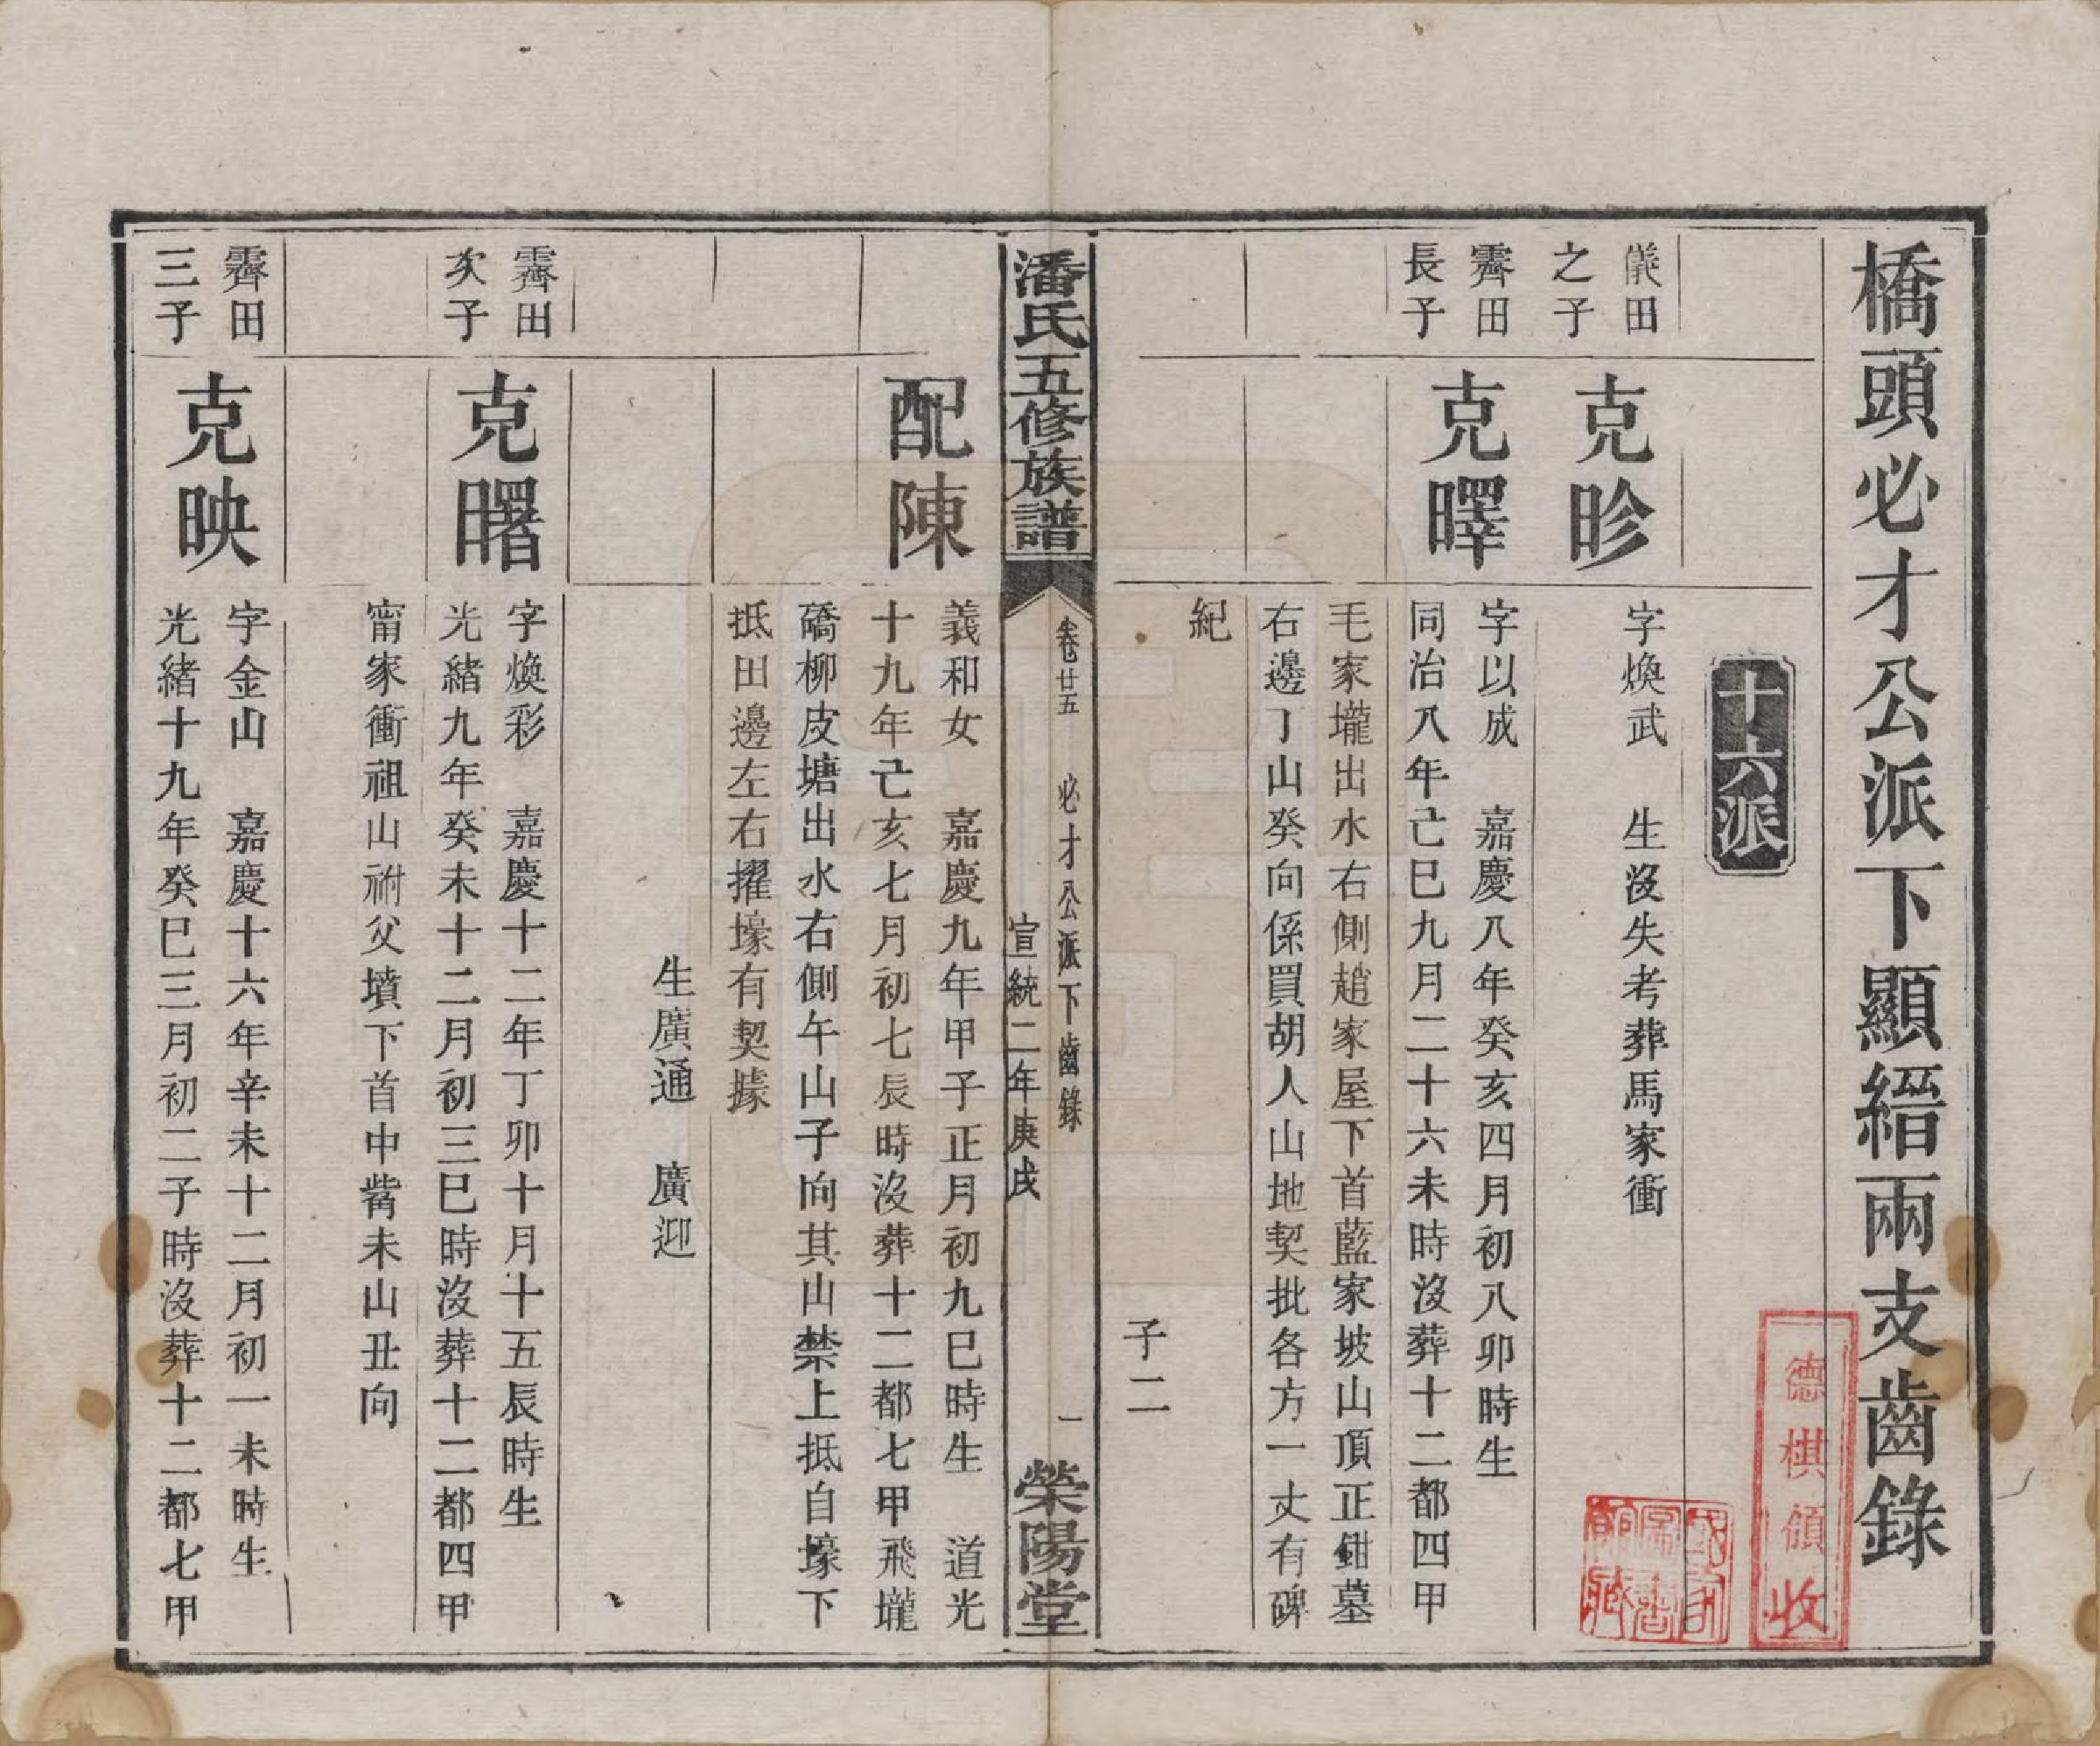 橋頭必才公派下顯縉兩支齒錄
十六派
儀田
之子
克昣
字煥武　生沒失考葬馬家衝
霽田
長子
克曎
字以成　嘉慶八年癸亥四月初八卯時生
同治八年己巳九月二十六未時沒葬十二都四甲
毛家壠出水右側趙家屋下首藍家坡山頂正鉗墓
右邊丁山癸向係買胡人山地契批各方一丈有碑
紀
子二
潘氏五修族譜
卷廿五　必才公派下齒錄　一
宣統二年庚戌
榮陽堂
配陳
義和女　嘉慶九年甲子正月初九巳時生　道光
十九年己亥七月初七辰時沒葬十二都七甲飛壠
礄柳皮塘出水右側午山子向其山禁上抵自壕下
抵田邊左右擢壕有契據
生廣通　廣迎
霽田
次子
克曙
字煥彩　嘉慶十二年丁卯十月十五辰時生
光緒九年癸未十二月初三巳時沒葬十二都四甲
甯家衝祖山祔父墳下首中觜未山丑向
霽田
三子
克映
字金山　嘉慶十六年辛未十二月初一未時生
光緒十九年癸巳三月初二子時沒葬十二都七甲
德棋領收
國家圖書館藏